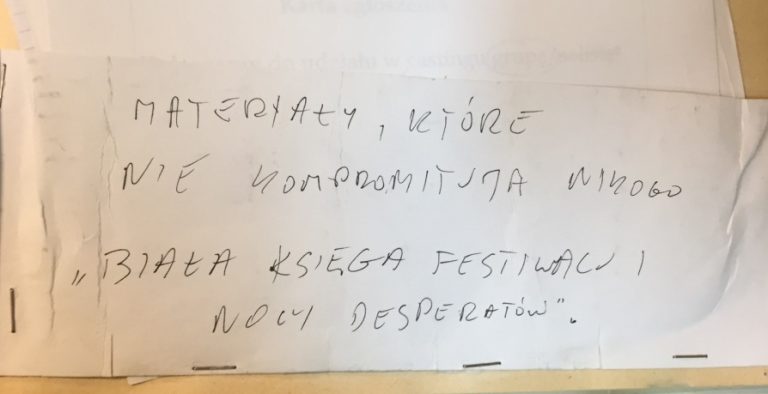 Karta zgłoszen
do udziału w castingu/grupa/solista
MATERYAŁY, KTÓRE
NIE KOMPROMITUJA NIKOGO
„BIAŁA KSIĘGA FESTIWALU I
NOCY DESPERATÓW".